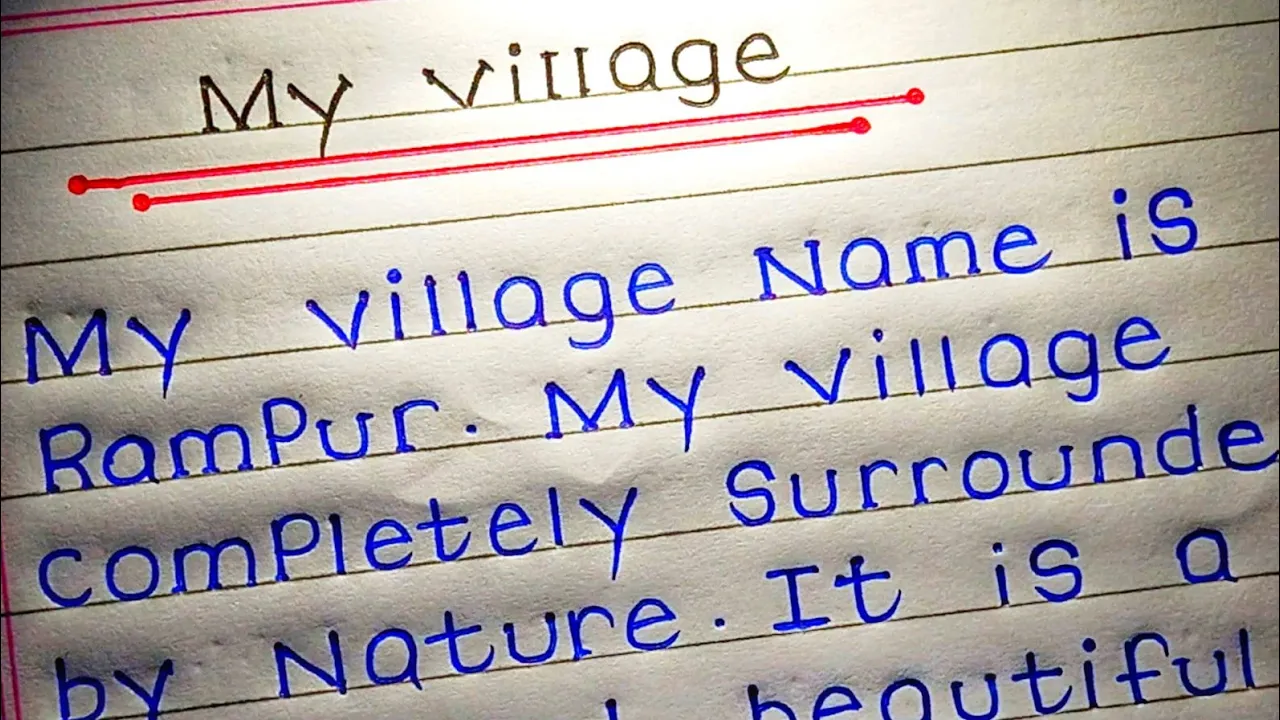 My village
My village Name is
RamPur. My village
comPletely Surrounde
by Nature. It is a
beautiful